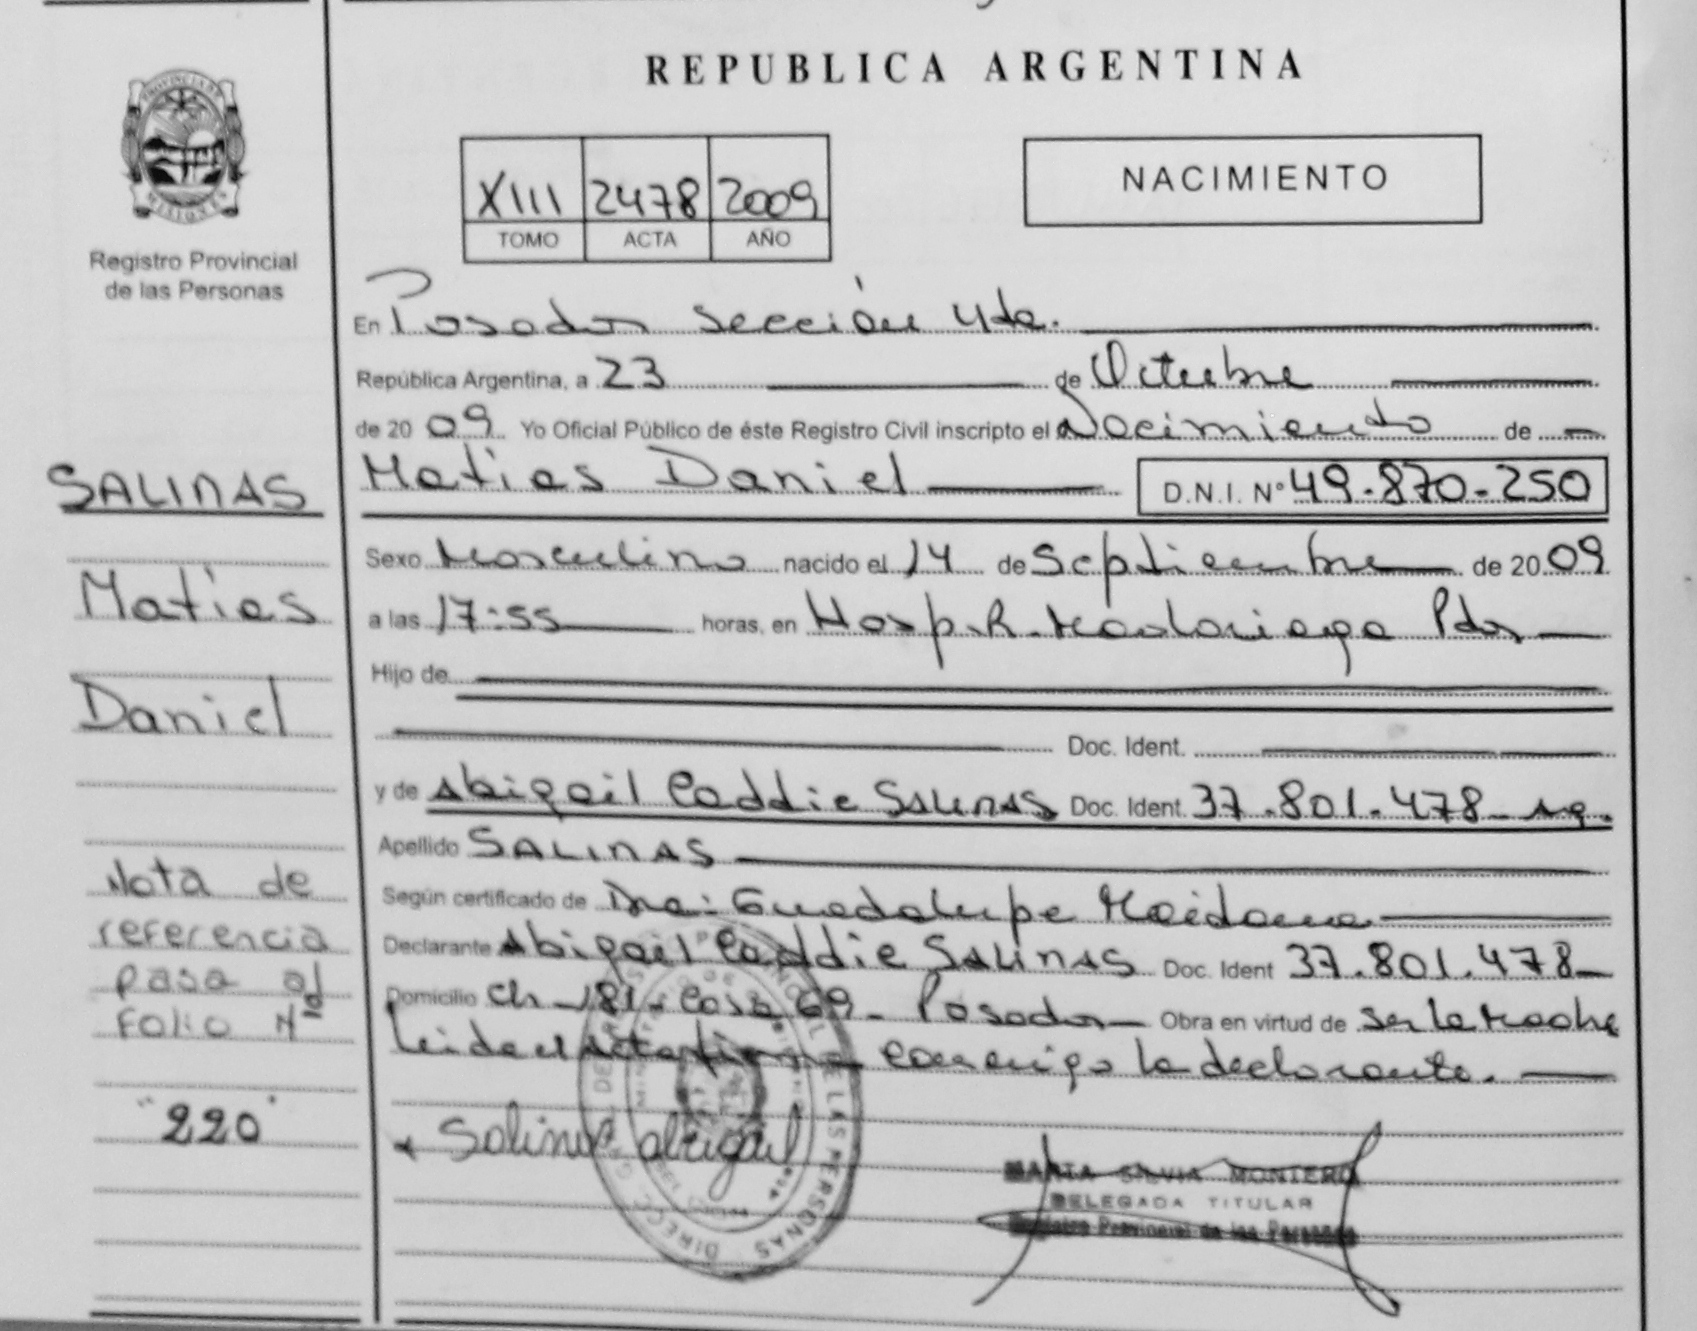 REPUBLICA ARGENTINA
PROVINCIA DE MISIONES
Registro Provincial
de las Personas
XIII 2478 2009
TOMO ACTA AÑO
NACIMIENTO
En Posadas Sección 4ta.
República Argentina, a 23 de Octubre
de 2009 Yo Oficial Público de éste Registro Civil inscripto el Nacimiento de
Matias Daniel D.N.I. Nº 49.870.250
Sexo Masculino nacido el 14 de Septiembre de 2009
a las 17:55 horas, en Hosp. R. Madariaga Pdas
Hijo de
Doc. Ident.
y de Abigail Caddie SALINAS Doc. Ident. 37.801.478 Arg.
Apellido SALINAS
Según certificado de Dra: Guadalupe Maidana
Declarante Abigail Caddie SALINAS Doc. Ident 37.801.478
Domicilio Ch 181 - Casa 69 - Posadas Obra en virtud de ser la madre
Leida el acta firma conmigo la declarante.
Salinas abigail
MARIA SILVIA MONTERO
DELEGADA TITULAR
Registro Provincial de las Personas
SALINAS
Matias
Daniel
Nota de
referencia
pasa al
Folio Nº
"220"